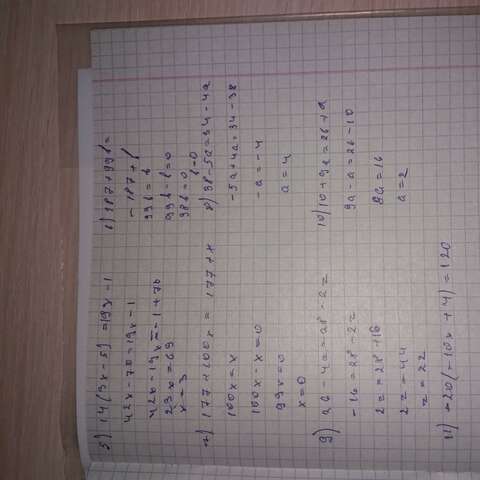 5) 14(3x-5)=19x-1
42x-70=19x-1
42x-19x=-1+70
23x=69
x=3
6) 187+99b=
=187+b
99b=b
99b-b=0
98b=0
b=0
7) 177+100x=177+x
100x=x
100x-x=0
99x=0
x=0
8) 38-5a=34-4a
-5a+4a=34-38
-a=-4
a=4
-16=28-2z
2z=28+16
2z=44
z=22
10) 10+9a=26+a
9a-a=26-10
8a=16
a=2
11) -20(-10x+4)=120